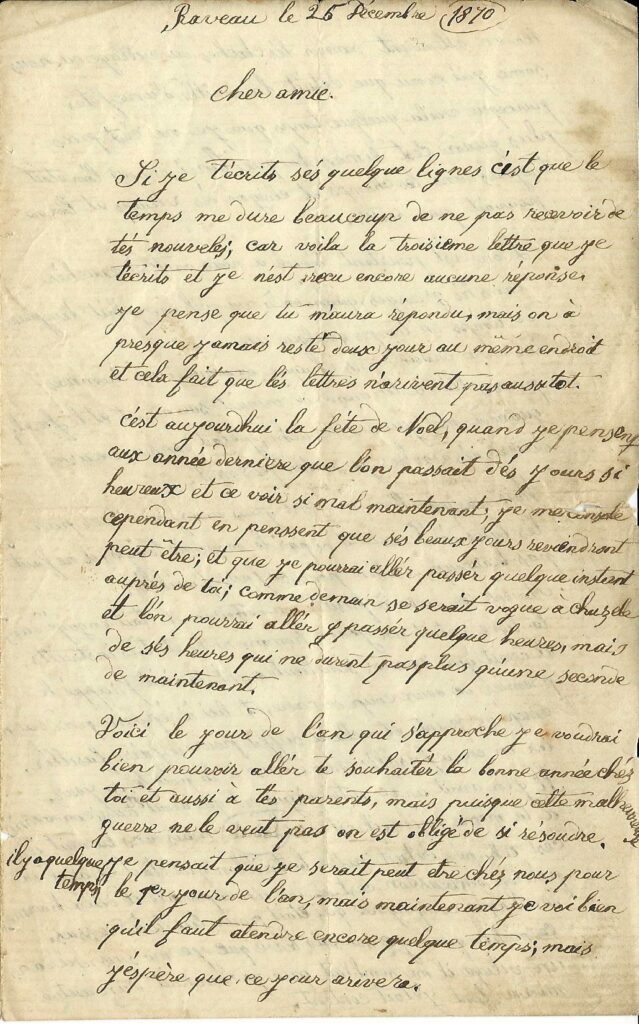 Raveau le 25 Décembre 1870
cher amie.
Si je t'écrits sés quelque lignes c'ist que le
temps me dure beaucoup de ne pas recevoir de
tés nouveles; car voila la troisieme lettre que je
t'écrits et je n'est recu encore aucune réponse.
je pense que tu m'aura répondu, mais on à
presque jamais resté deux jour au mëme endroit
et cela fait que lés lettres n'arivent pas aussitot.
c'est aujourdhui la féte de Noël, quand je pensent
aux année derniere que l'on passait dés jours si
heureux et ce voir si mal maintenant; je me console
cependant en penssent que sés beaux jours reviendront
peut ëtre; et que je pourrai allér passér quelque instent
auprés de toi; comme demain se serait vogue à Chazele
et l'on pourrai allér y passér quelque heures, mais
de sés heures qui ne durent pas plus qu'une seconde
de maintenant.
Voici le jour de l'an qui s'approche je voudrai
bien pouvoir allér te souhaitér la bonne année chés
toi et aussi à tes parents, mais puisque cette malheureuse
guerre ne le veut pas on est obligé de si résoudre.
il y a quelque temps je pensait que je serait peut etre chés nous pour
le 1er jour de l'an, mais maintenant je voi bien
qu'il faut atendre encore quelque temps; mais
j'éspère que ce jour arivera.